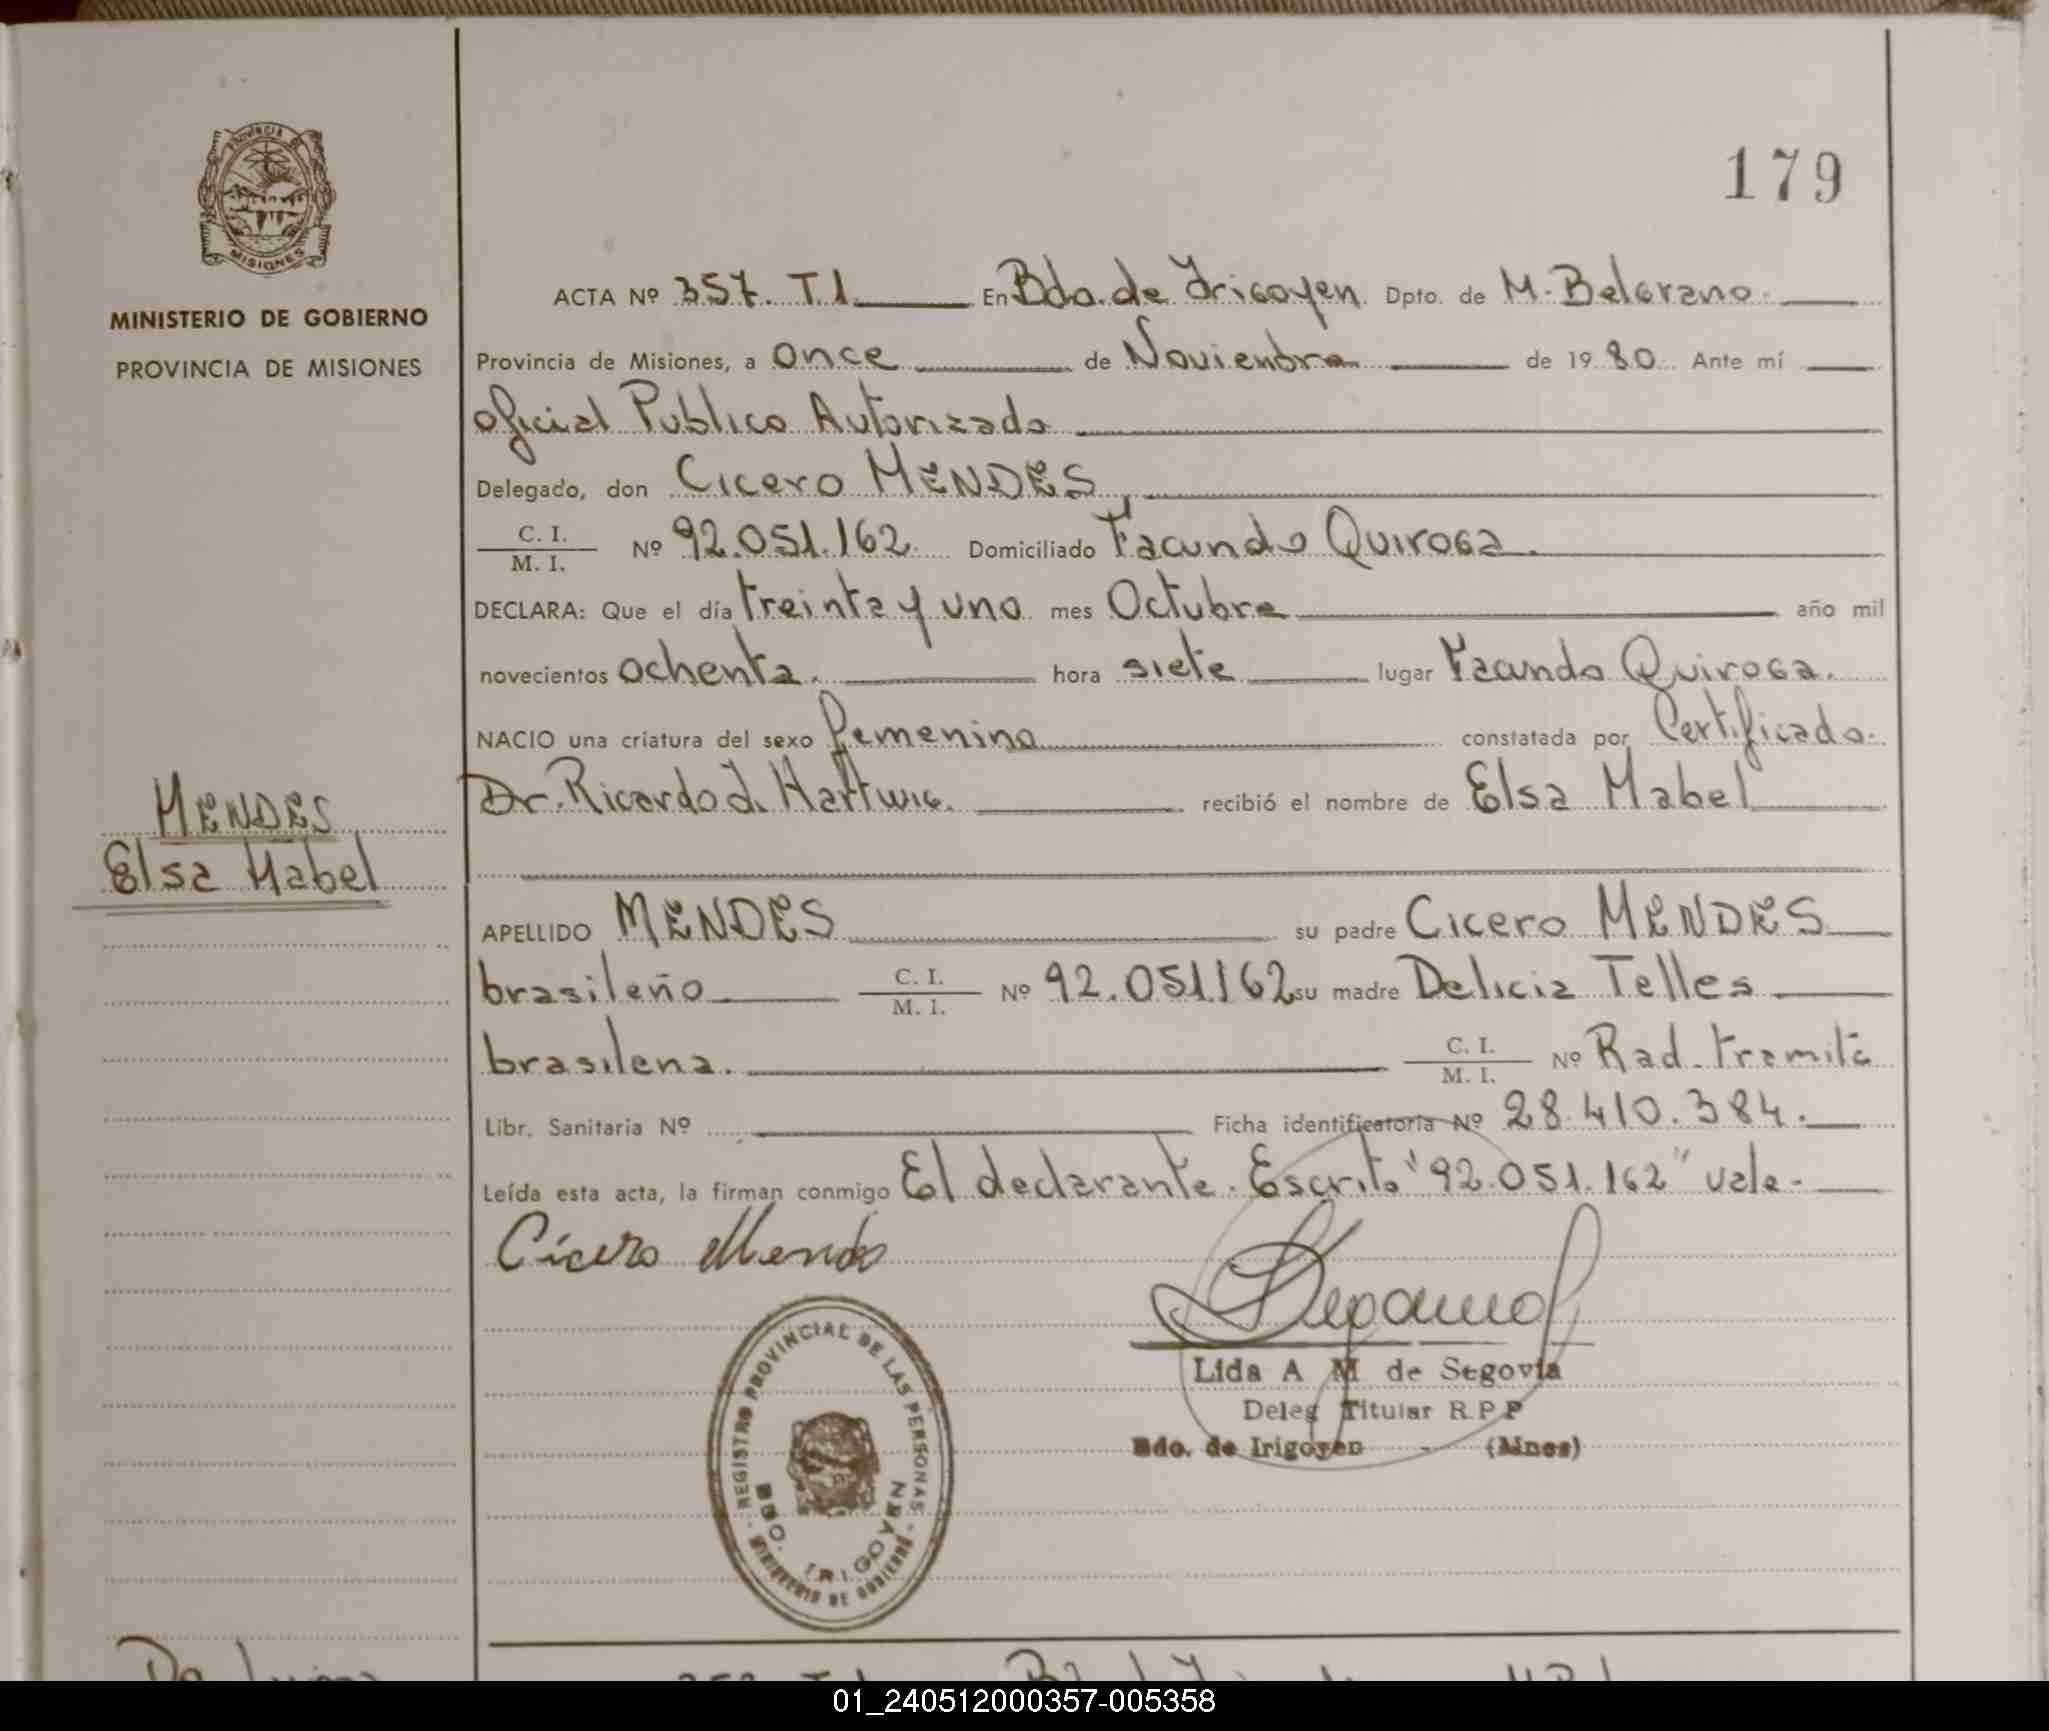 179
PROVINCIA
MISIONES
MINISTERIO DE GOBIERNO
PROVINCIA DE MISIONES
ACTA Nº 357. T.1. En Bdo. de Irigoyen Dpto. de M. Belgrano.
Provincia de Misiones, a Once de Noviembre de 1980. Ante mí
oficial Publico Autorizado
Delegado, don Cicero MENDES,
C. I.
M. I.
Nº 92.051.162. Domiciliado Facundo Quiroga.
DECLARA: Que el día treinta y uno mes Octubre año mil
novecientos ochenta. hora siete lugar Facundo Quiroga.
NACIO una criatura del sexo femenino constatada por Certificado.
Dr. Ricardo J. Hartwig. recibió el nombre de Elsa Mabel
MENDES
Elsa Mabel
APELLIDO MENDES su padre Cicero MENDES
brasileño C. I. M. I. Nº 92.051162 su madre Delicia Telles
brasilena. C. I. M. I. Nº Rad. tramite
Libr. Sanitaria Nº Ficha identificatoria Nº 28.410.384.
Leída esta acta, la firman conmigo El declarante. Escrito "92.051.162" vale.
Cícero Mendes
Lida A M de Segovia
Deleg Titular R.P.P
Bdo. de Irigoyen - (Mnes)
REGISTRO PROVINCIAL DE LAS PERSONAS
BDO. IRIGOYEN
MINISTERIO DE GOBIERNO
01_240512000357-005358